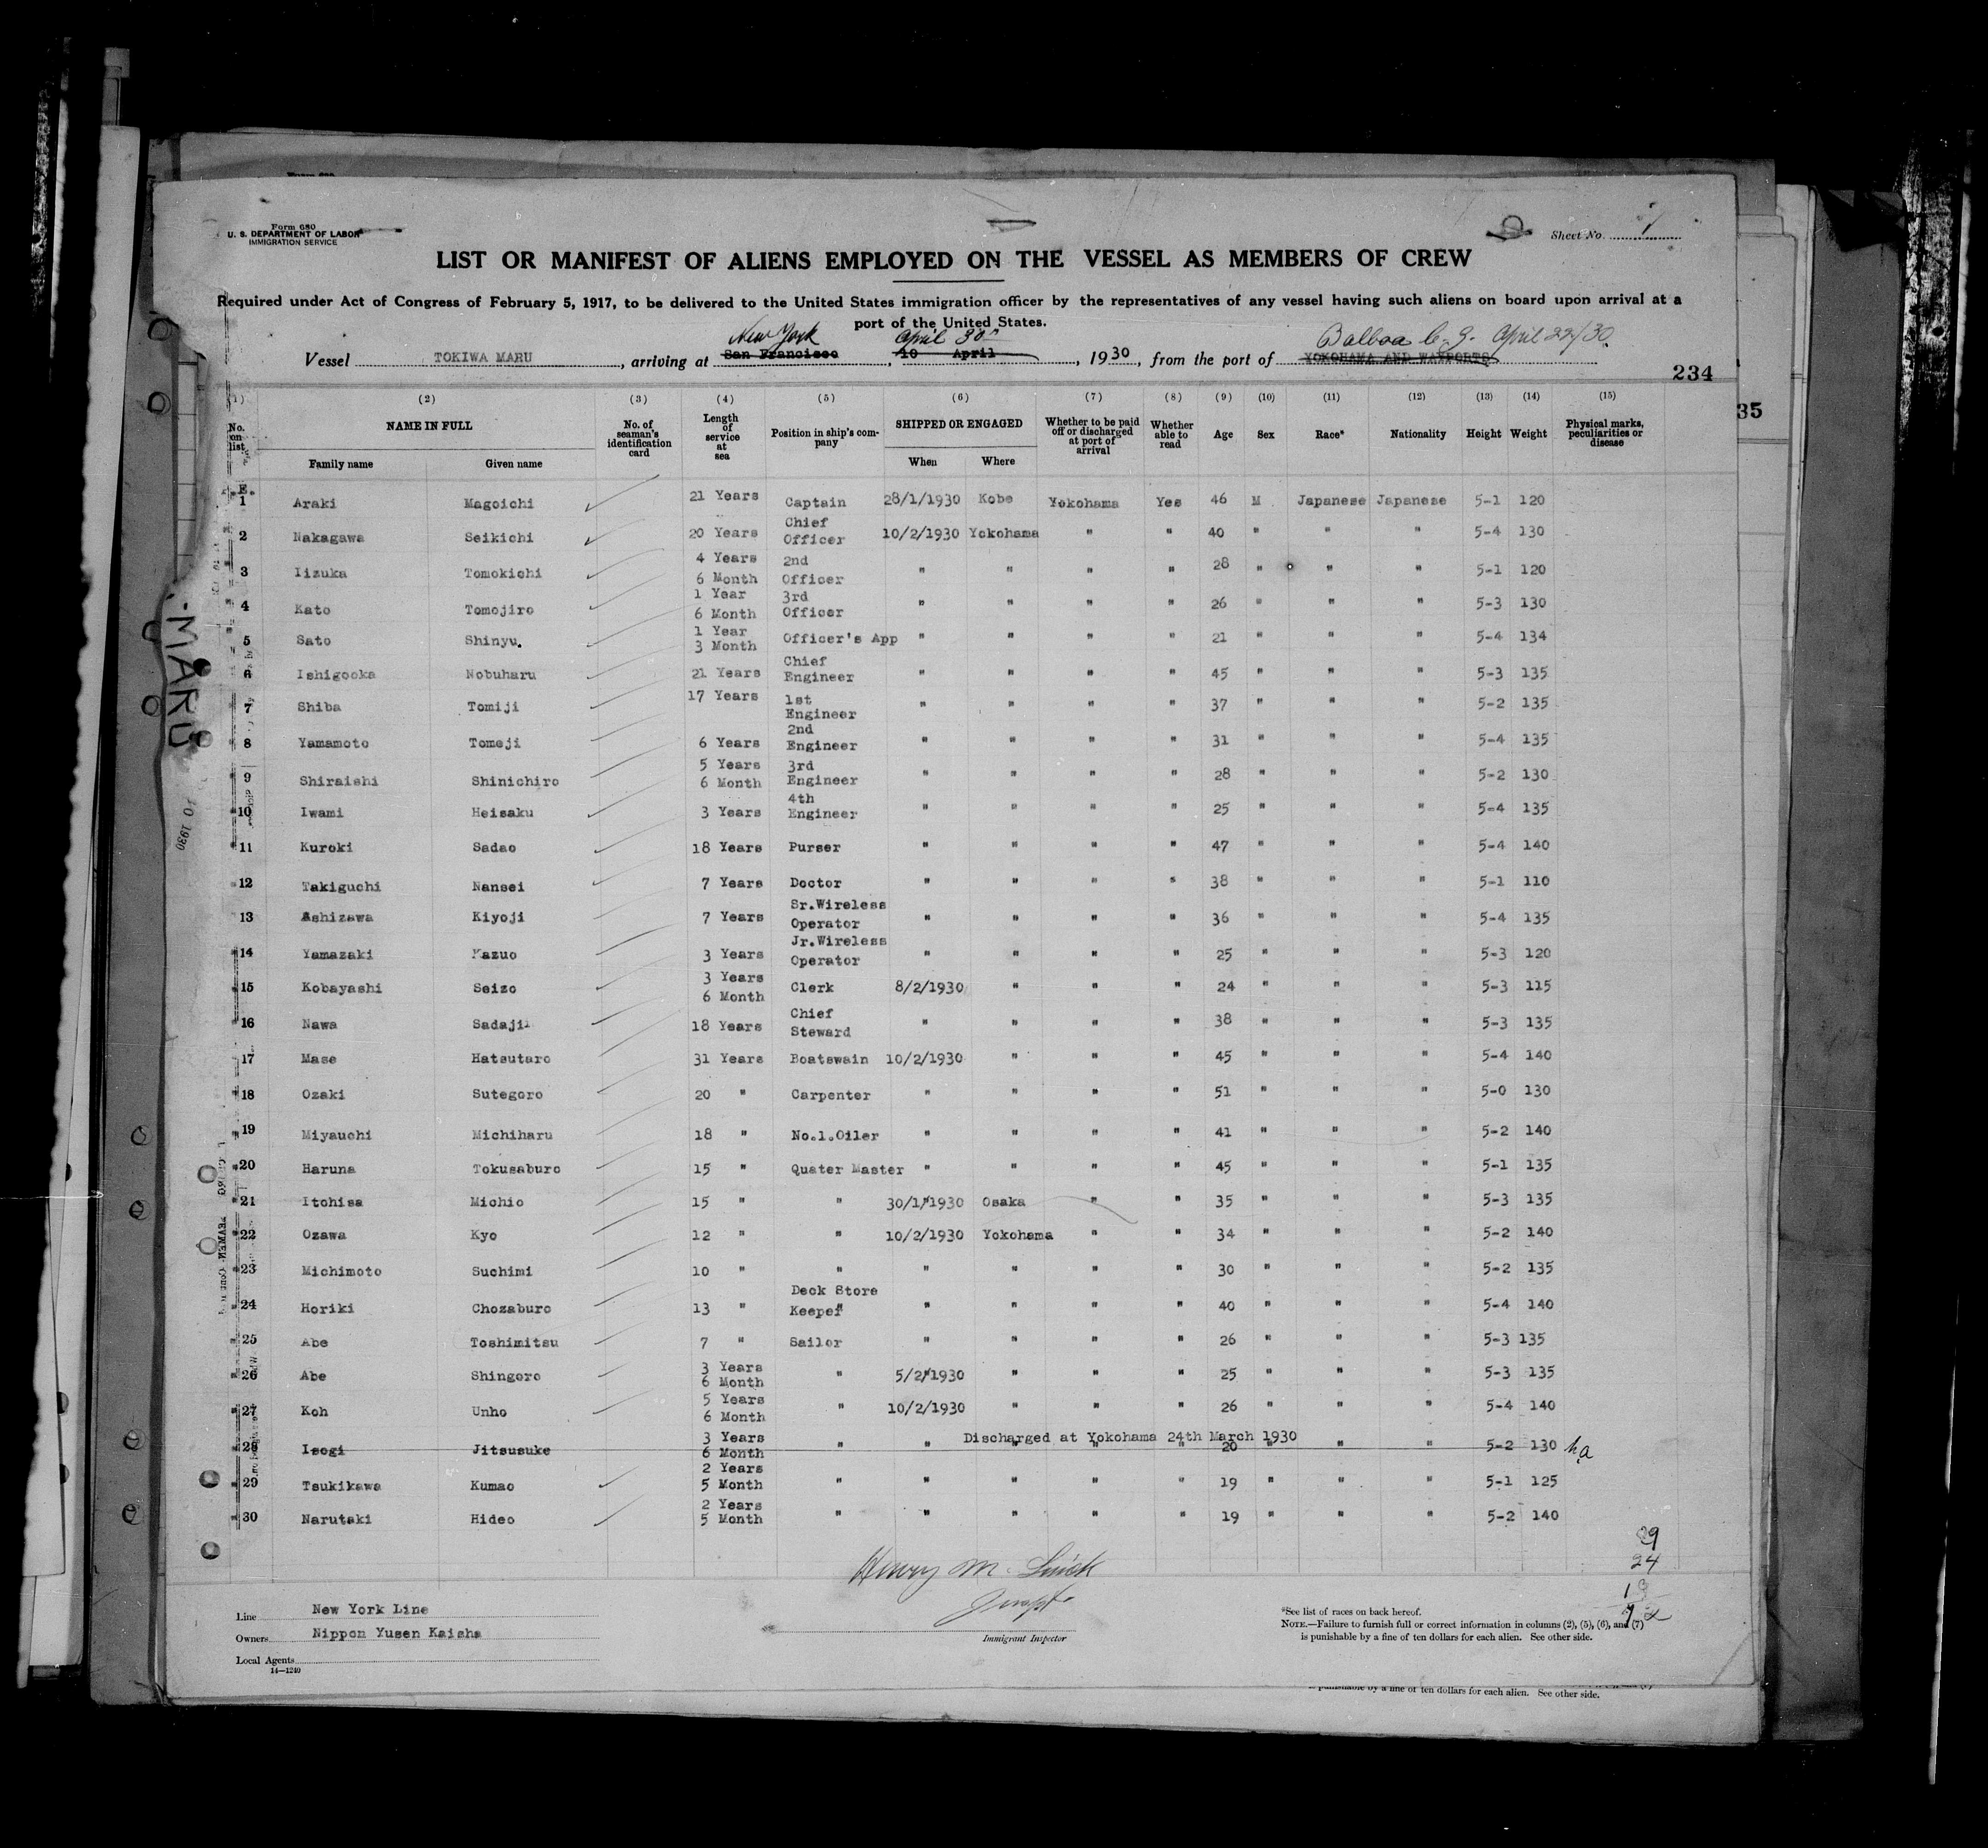 Form 680
U. S. DEPARTMENT OF LABOR
IMMIGRATION SERVICE
Sheet No. 1
LIST OR MANIFEST OF ALIENS EMPLOYED ON THE VESSEL AS MEMBERS OF CREW
Required under Act of Congress of February 5, 1917, to be delivered to the United States immigration officer by the representatives of any vessel having such aliens on board upon arrival at a
port of the United States.
New York April 30" Balboa C.Z. April 22/30
Vessel TOKIWA MARU, arriving at San Francisco, 10 April, 1930, from the port of YOKOHAMA AND WAYPORTS
234
35
(1) (2) (3) (4) (5) (6) (7) (8) (9) (10) (11) (12) (13) (14) (15)
No. on list NAME IN FULL Family name Given name No. of seaman's identification card Length of service at sea Position in ship's company SHIPPED OR ENGAGED When Where Whether to be paid off or discharged at port of arrival Whether able to read Age Sex Race* Nationality Height Weight Physical marks, peculiarities or disease
1 Araki Magoichi 21 Years Captain 28/1/1930 Kobe Yokohama Yes 46 M Japanese Japanese 5-1 120
2 Nakagawa Seikichi 20 Years Chief Officer 10/2/1930 Yokohama " " 40 " " " 5-4 130
3 Iizuka Tomokichi 4 Years 6 Month 2nd Officer " " " " 28 " " " 5-1 120
4 Kato Tomojiro 1 Year 6 Month 3rd Officer " " " " 26 " " " 5-3 130
5 Sato Shinyu. 1 Year 3 Month Officer's App " " " " 21 " " " 5-4 134
6 Ishigooka Nobuharu 21 Years Chief Engineer " " " " 45 " " " 5-3 135
7 Shiba Tomiji 17 Years 1st Engineer " " " " 37 " " " 5-2 135
8 Yamamoto Tomeji 6 Years 2nd Engineer " " " " 31 " " " 5-4 135
9 Shiraishi Shinichiro 5 Years 6 Month 3rd Engineer " " " " 28 " " " 5-2 130
10 Iwami Heisaku 3 Years 4th Engineer " " " " 25 " " " 5-4 135
11 Kuroki Sadao 18 Years Purser " " " " 47 " " " 5-4 140
12 Takiguchi Nansei 7 Years Doctor " " " " 38 " " " 5-1 110
13 Ashizawa Kiyoji 7 Years Sr.Wireless Operator " " " " 36 " " " 5-4 135
14 Yamazaki Kazuo 3 Years Jr.Wireless Operator " " " " 25 " " " 5-3 120
15 Kobayashi Seizo 3 Years 6 Month Clerk 8/2/1930 " " " 24 " " " 5-3 115
16 Nawa Sadaji 18 Years Chief Steward " " " " 38 " " " 5-3 135
17 Mase Hatsutaro 31 Years Boatswain 10/2/1930 " " " 45 " " " 5-4 140
18 Ozaki Sutegoro 20 " Carpenter " " " " 51 " " " 5-0 130
19 Miyauchi Michiharu 18 " No.1.Oiler " " " " 41 " " " 5-2 140
20 Haruna Tokusaburo 15 " Quater Master " " " " 45 " " " 5-1 135
21 Itohisa Michio 15 " " 30/1/1930 Osaka " " 35 " " " 5-3 135
22 Ozawa Kyo 12 " " 10/2/1930 Yokohama " " 34 " " " 5-2 140
23 Michimoto Suchimi 10 " " " " " " 30 " " " 5-2 135
24 Horiki Chozaburo 13 " Deck Store Keeper " " " " 40 " " " 5-4 140
25 Abe Toshimitsu 7 " Sailor " " " " 26 " " " 5-3 135
26 Abe Shingoro 3 Years 6 Month " 5/2/1930 " " " 25 " " " 5-3 135
27 Koh Unho 5 Years 6 Month " 10/2/1930 " " " 26 " " " 5-4 140
Discharged at Yokohama 24th March 1930
28 Isogi Jitsusuke 3 Years 6 Month " " " " " 20 " " 5-2 130
29 Tsukikawa Kumao 2 Years 5 Month " " " " " 19 " " " 5-1 125
30 Narutaki Hideo 2 Years 5 Month " " " " " 19 " " " 5-2 140
29
24
Henry M.
Immigrant Inspector
Line New York Line
Owners Nippon Yusen Kaisha
Local Agents
14—1240
*See list of races on back hereof.
NOTE.—Failure to furnish full or correct information in columns (2), (5), (6), and (7)
is punishable by a fine of ten dollars for each alien. See other side.
is punishable by a fine of ten dollars for each alien. See other side.
-MARU
10 1930